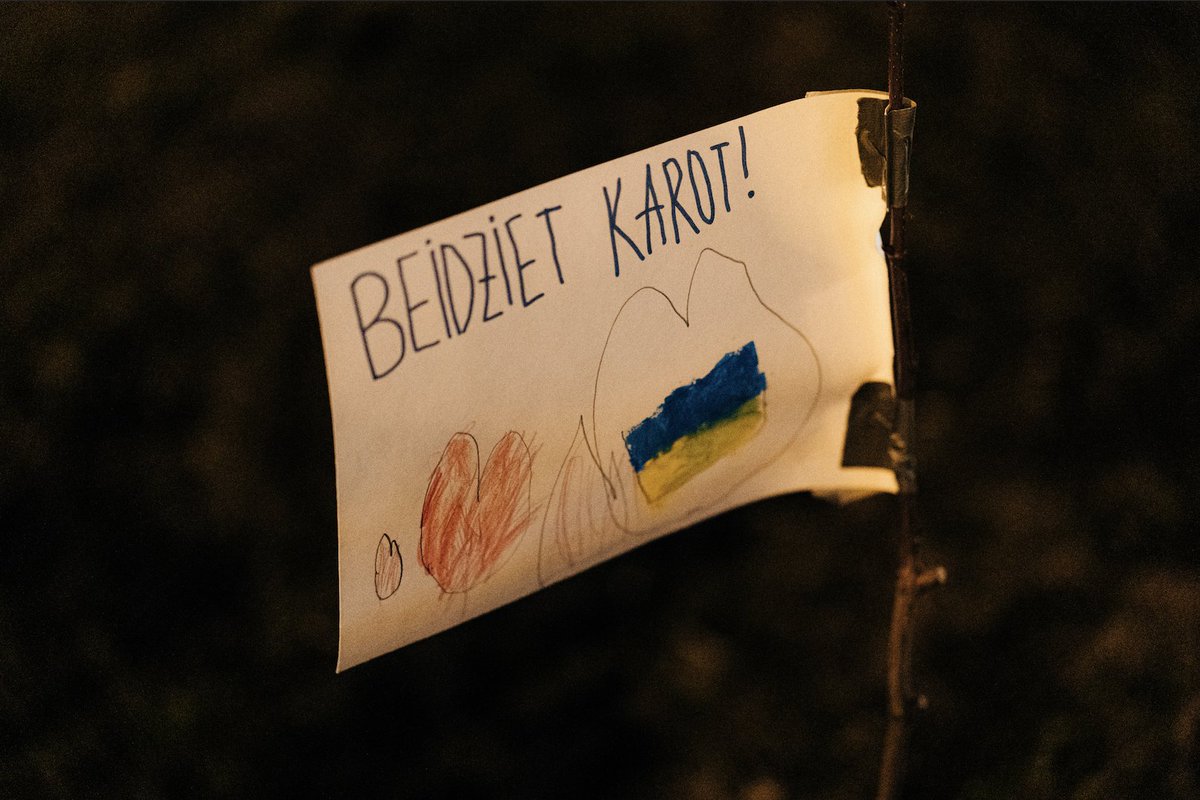 BEIDZIET KAROT!